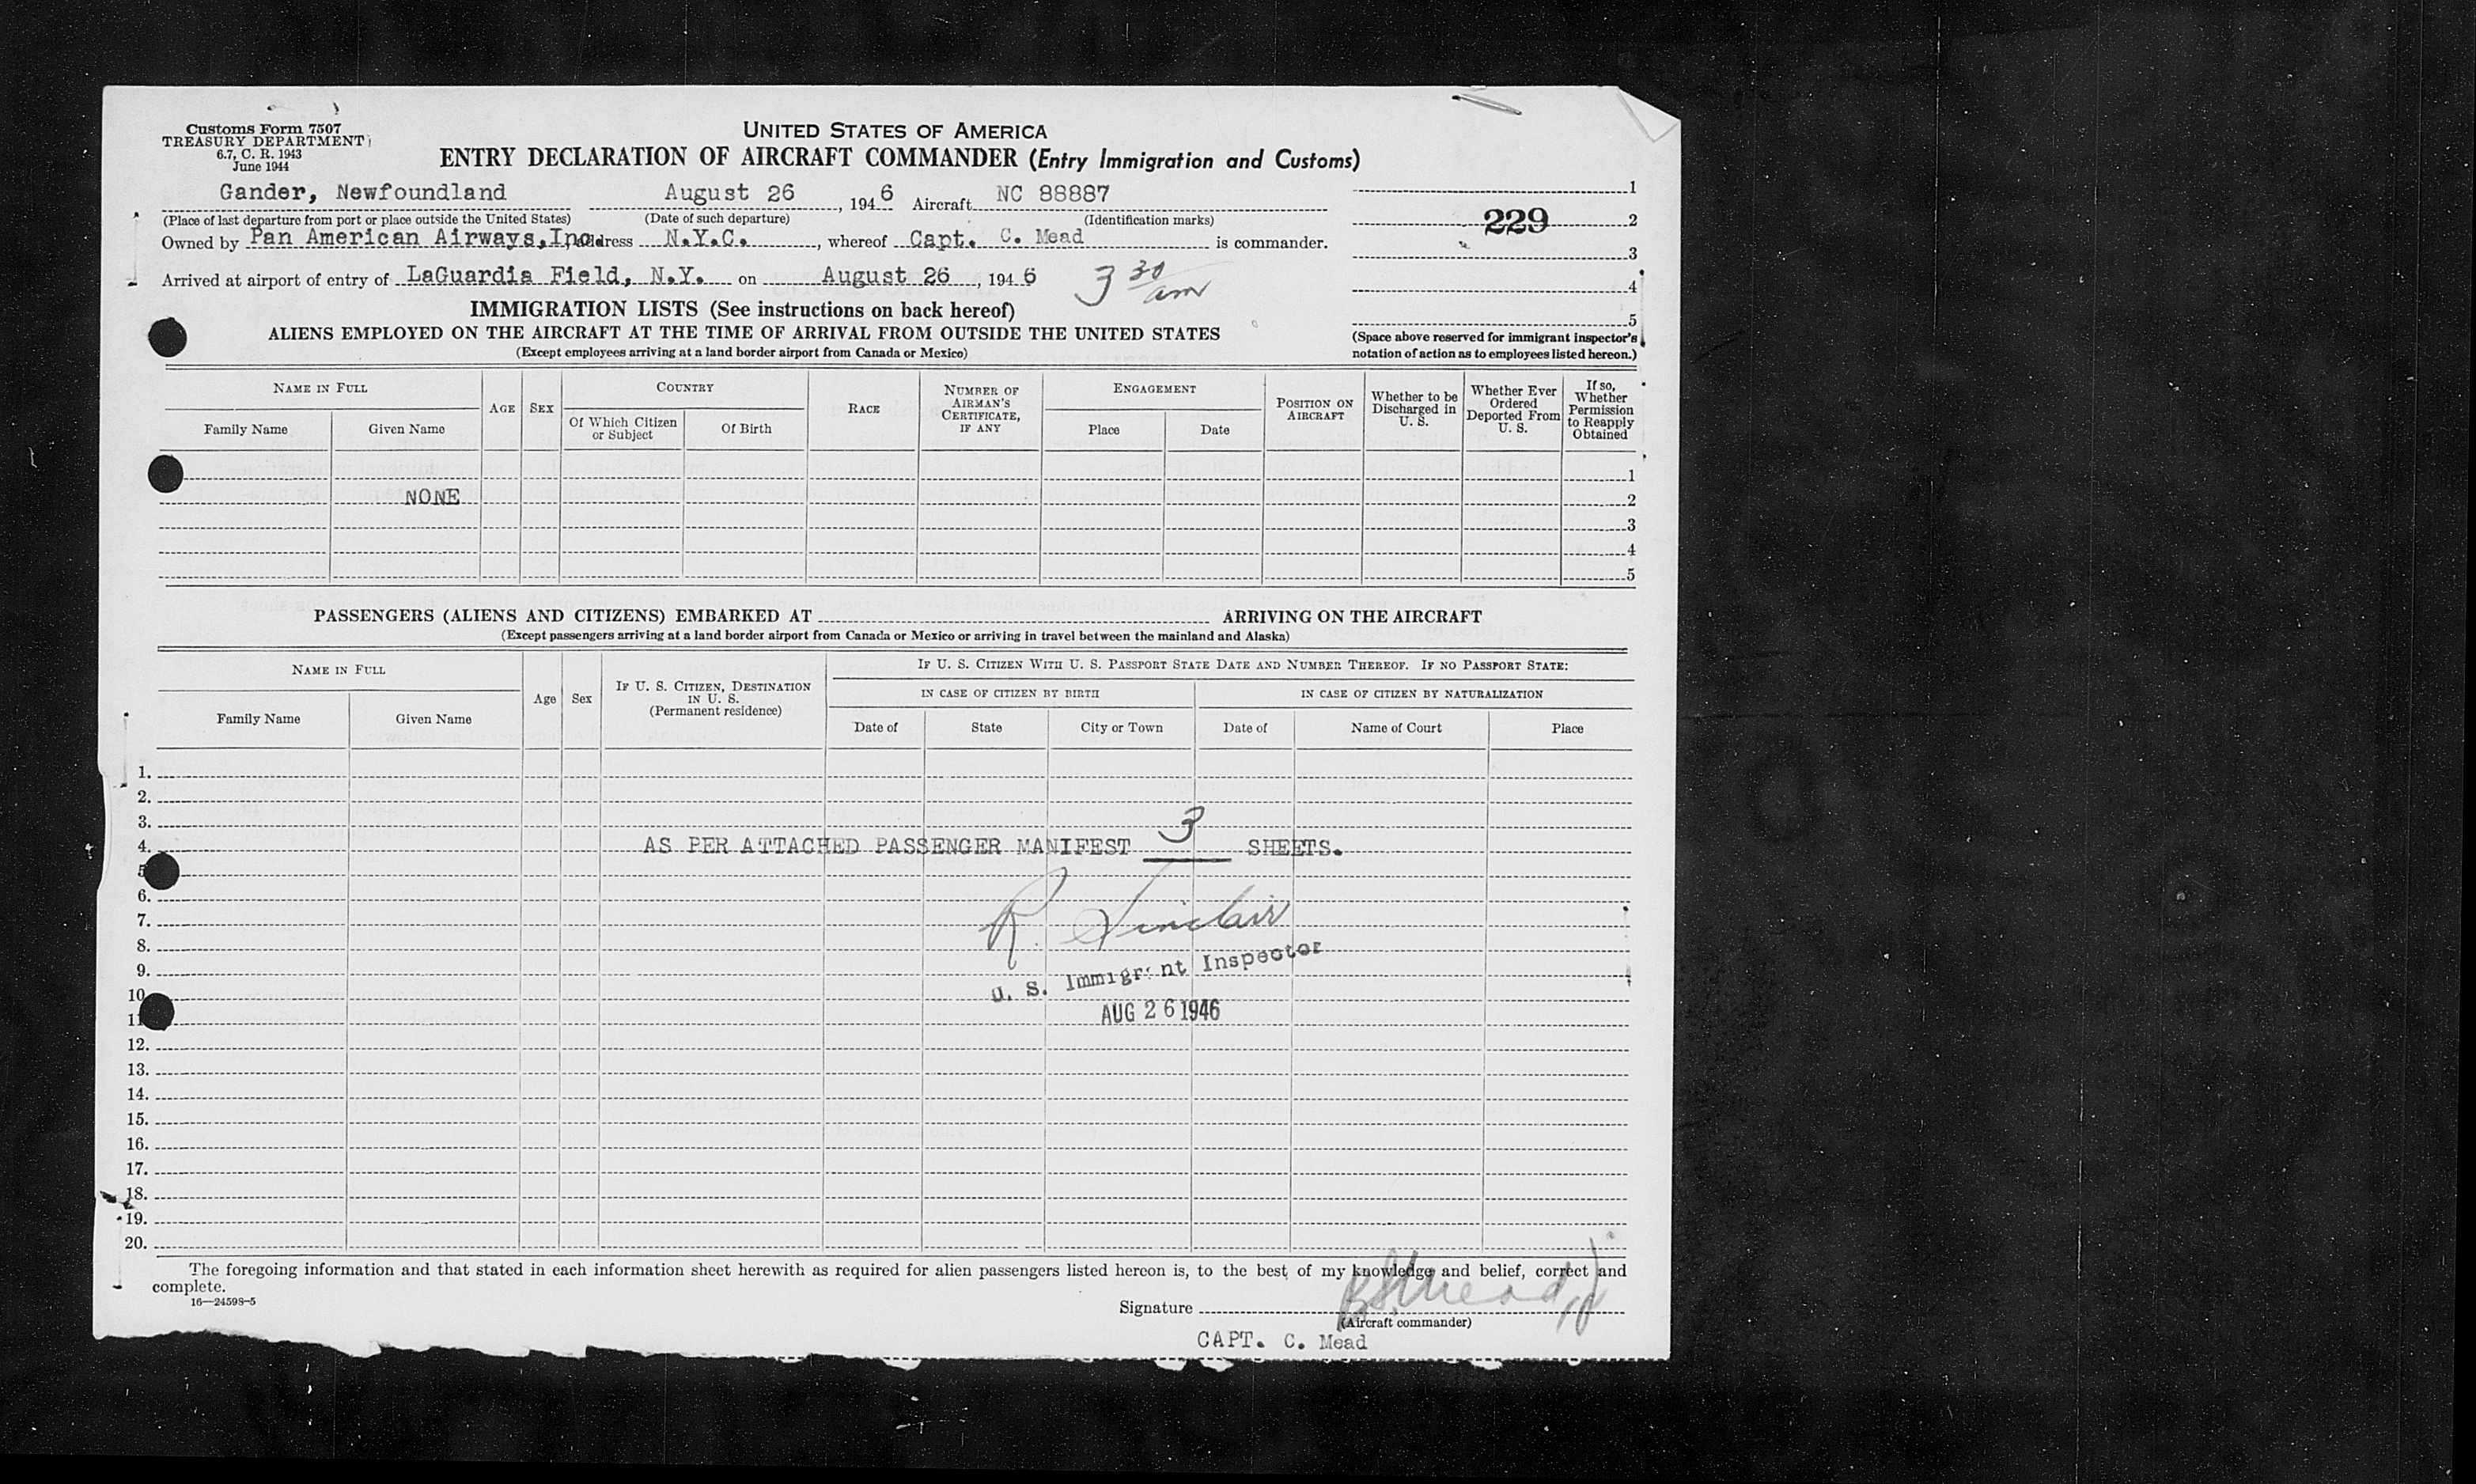 Customs Form 7507
TREASURY DEPARTMENT
6.7, C. R. 1943
June 1944
UNITED STATES OF AMERICA
ENTRY DECLARATION OF AIRCRAFT COMMANDER (Entry Immigration and Customs)
Gander, Newfoundland August 26, 1946 Aircraft NC 88887
(Place of last departure from port or place outside the United States) (Date of such departure) (Identification marks)
Owned by Pan American Airways, Inc. Address N.Y.C., whereof Capt. C. Mead is commander.
Arrived at airport of entry of LaGuardia Field, N.Y. on August 26, 1946 3 30 am
1
229 2
3
4
5
(Space above reserved for immigrant inspector's notation of action as to employees listed hereon.)
IMMIGRATION LISTS (See instructions on back hereof)
ALIENS EMPLOYED ON THE AIRCRAFT AT THE TIME OF ARRIVAL FROM OUTSIDE THE UNITED STATES
(Except employees arriving at a land border airport from Canada or Mexico)
NAME IN FULL AGE SEX COUNTRY RACE NUMBER OF AIRMAN'S CERTIFICATE, IF ANY ENGAGEMENT POSITION ON AIRCRAFT Whether to be Discharged in U. S. Whether Ever Ordered Deported From U. S. If so, Whether Permission to Reapply Obtained
Family Name Given Name Of Which Citizen or Subject Of Birth Place Date
1
NONE 2
3
4
5
PASSENGERS (ALIENS AND CITIZENS) EMBARKED AT ARRIVING ON THE AIRCRAFT
(Except passengers arriving at a land border airport from Canada or Mexico or arriving in travel between the mainland and Alaska)
NAME IN FULL Age Sex IF U. S. CITIZEN, DESTINATION IN U. S. (Permanent residence) IF U. S. CITIZEN WITH U. S. PASSPORT STATE DATE AND NUMBER THEREOF. IF NO PASSPORT STATE:
IN CASE OF CITIZEN BY BIRTH IN CASE OF CITIZEN BY NATURALIZATION
Family Name Given Name Date of State City or Town Date of Name of Court Place
1.
2.
3.
4. AS PER ATTACHED PASSENGER MANIFEST 3 SHEETS.
5
6.
7. R. Sinclair
8.
9. U. S. Immigrant Inspector
10
11 AUG 26 1946
12.
13.
14.
15.
16.
17.
18.
19.
20.
The foregoing information and that stated in each information sheet herewith as required for alien passengers listed hereon is, to the best of my knowledge and belief, correct and
complete.
16—24598-5
Signature
(Aircraft commander)
CAPT. C. Mead